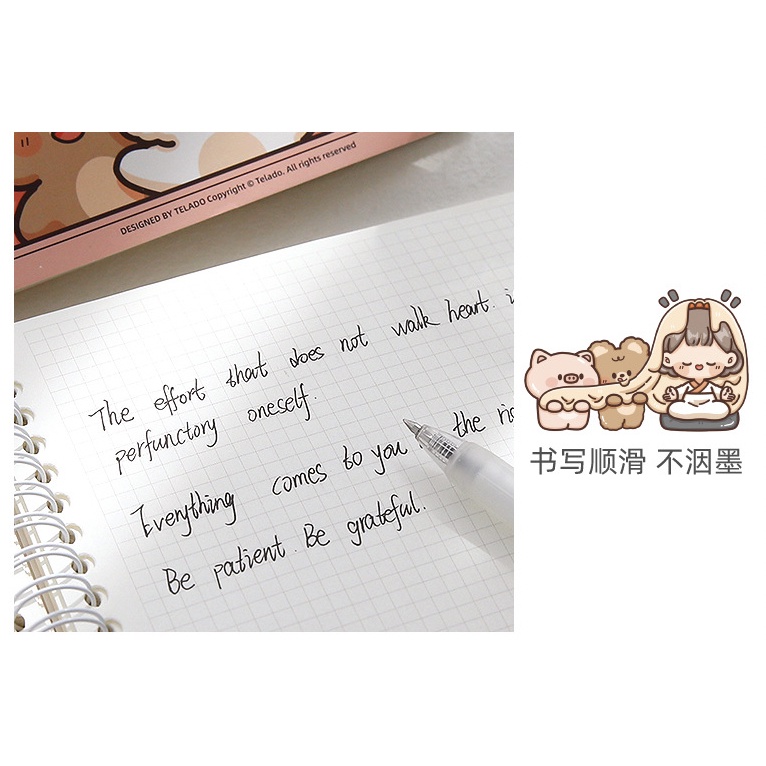 DESIGNED BY TELADO Copyright © Telado. All rights reserved
The effort that does not walk heart.
perfunctory oneself.
Everything comes to you the
Be patient. Be grateful.
书写顺滑 不洇墨